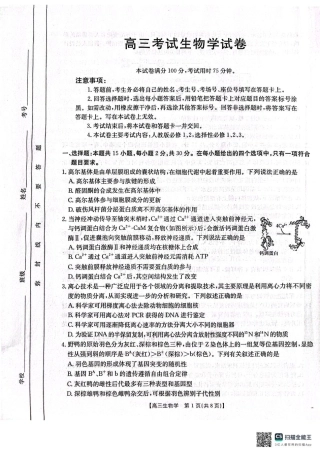 高三考试生物学试卷
本试卷满分100分,考试用时75分钟。
注意事项:
1.答题前,考生务必将自己的姓名、考生号、考场号、座位号填写在答题卡上。
2.回答选择题时,选出每小题答案后,用铅笔把答题卡上对应题目的答案标号涂
黑。如需改动,用橡皮擦干净后,再选涂其他答案标号。回答非选择题时,将答案写在
答题卡上。写在本试卷上无效。
3.考试结束后,将本试卷和答题卡一并交回。
4.本试卷主要考试内容:人教版必修1、2,选择性必修1、2、3。
一、选择题:本题共15小题,每小题2分,共30分。在每小题给出的四个选项中,只有一项符合
题目要求。
1.高尔基体是由单层膜组成的囊状结构,在细胞代谢中起着重要作用。下列说法正确的是
A.高尔基体主要参与肽键的形成
B.醋固酮的合成发生在高尔基体
C.高尔基体参与细胞膜成分的更新
D.破伤风杆菌分泌外毒素离不开高尔基体
2.当神经冲动传导至轴突末梢时,Ca²⁺通过Ca²⁺通道进入突触前神经元,
与钙调蛋白结合为Ca²⁺-CaM复合物(如图所示)后,会激活钙调蛋白
激酶,促进囊泡向突触前膜移动,释放神经递质。下列叙述正确的是
A.Ca²⁺通过Ca²⁺通道时需要与通道蛋白结合
B.Ca²⁺通过Ca²⁺通道进入突触前神经元需消耗ATP
C.突触前膜释放神经递质不需要蛋白质的参与
D.钙调蛋白结合Ca²⁺后,其空间结构会发生改变
钙调蛋白
3.离心技术是一种广泛应用于各个领域的分离和提取技术,其主要原理是利用离心力将不同密
度的物质分离,从而实现进一步的分析和研究。下列叙述错误的是
A.科学家可用梯度离心法将动物细胞的细胞核
B.科学家可用离心法对PCR获得的DNA进行鉴定
C.科学家可用逐渐降低离心速率的方法分离大小不同的细胞器
D.为验证DNA的半保留复制,可根据离心后试管中条带的位置来区分不同密度的¹⁵N和¹⁴N的物质
4.野鸭的原始羽色分为灰红、棕棕和棕色三种,由位于Z染色体上的一组复等位基因控制,显隐
A.羽色基因的形成体现了基因突变的随机性
C.灰红野鸭的雌性后代最多有三种表型和基因型
高三生物学 第1页(共8页)
学校
班级
姓名
考号
密封线内不要答题
扫描全能王